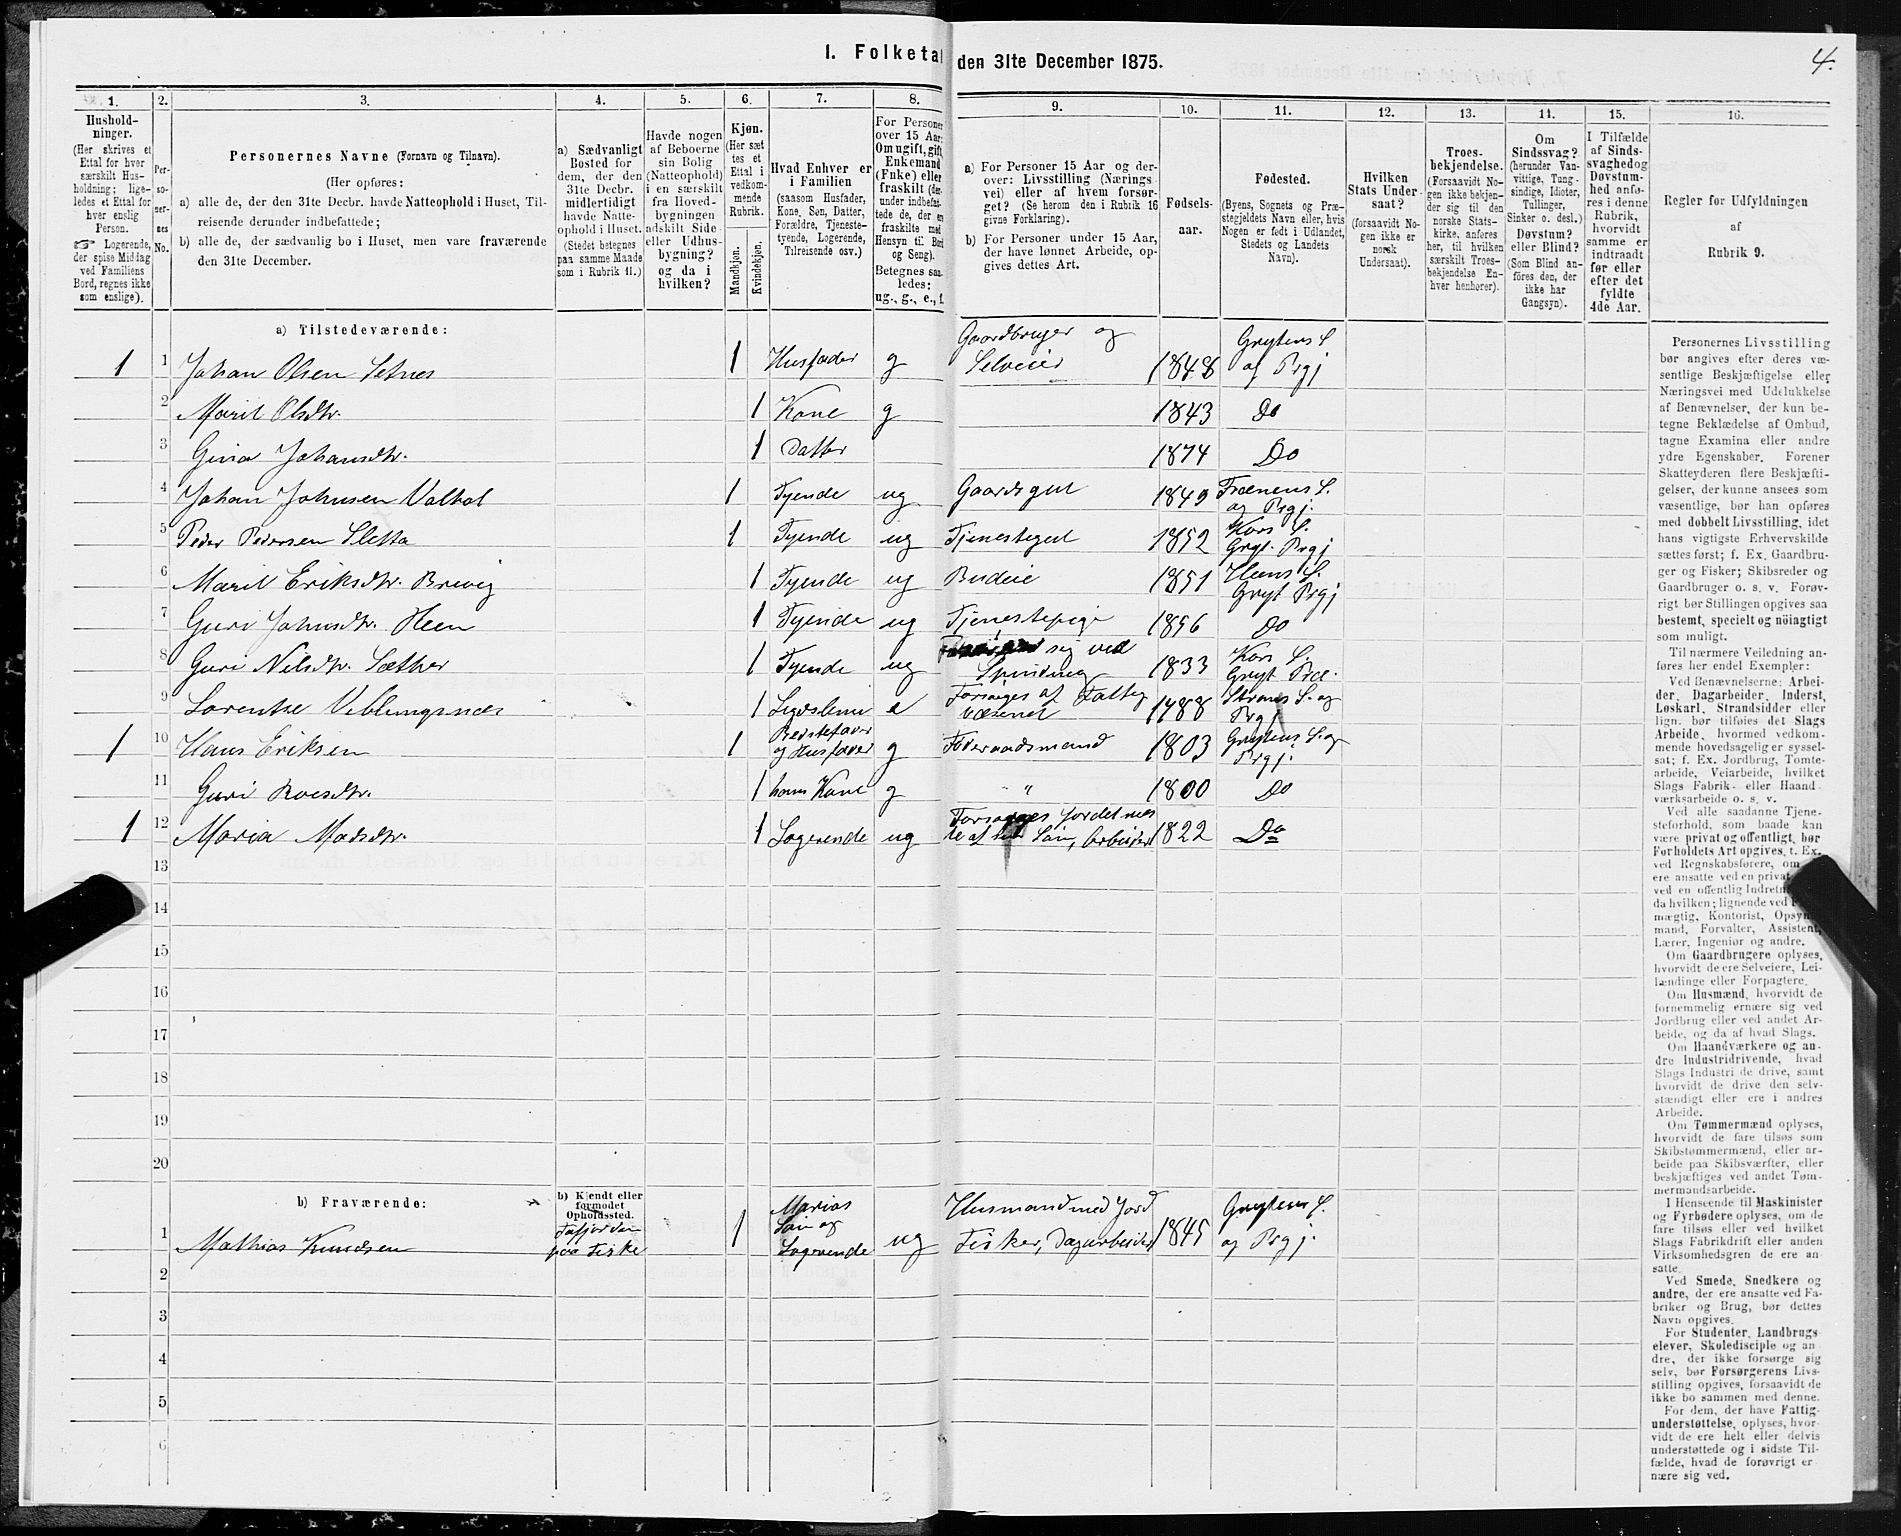 I. Folketal den 31te December 1875.
4.
1. 2. 3. 4. 5. 6. 7. 8. 9. 10. 11. 12. 13. 14. 15. 16.
Hushold-
ninger.
(Her skrives et
Ettal for hver
særskilt Hus-
holdning; lige-
ledes et Ettal for
hver enslig
Person.
☞ Logerende,
der spise Middag
ved Familiens
Bord, regnes ikke
som enslige).
Per-
so-
ner-
nes
No.
Personernes Navne (Fornavn og Tilnavn).
(Her opføres:
a) alle de, der den 31te Decbr. havde Natteophold i Huset, Til-
reisende derunder indbefattede;
b) alle de, der sædvanlig bo i Huset, men vare fraværende
den 31te December.
a) Sædvanligt
Bosted for
dem, der den
31te Decbr.
midlertidigt
havde Natte-
ophold i Huset.
(Stedet betegnes
paa samme Maade
som i Rubrik 11.)
Havde nogen
af Beboerne
sin Bolig
(Natteophold)
i en særskilt
fra Hoved-
bygningen
adskilt Side-
eller Udhus-
bygning?
og da i
hvilken?
Kjøn.
(Her sæt-
tes et
Ettal i
vedkom-
mende
Rubrik.
Mandkjøn.
Kvindekjøn.
Hvad Enhver er
i Familien
(saasom Husfader,
Kone, Søn, Datter,
Forældre, Tjeneste-
tyende, Logerende,
Tilreisende osv.)
For Personer
over 15 Aar:
Om ugift, gift,
Enkemand
(Enke) eller
fraskilt (der-
under indbefat-
tede de, der ere
fraskilte med
Hensyn til Bord
og Seng).
Betegnes saa-
ledes:
ug., g., e., f.
a) For Personer 15 Aar og der-
over: Livsstilling (Nærings-
vei) eller af hvem forsør-
get? (Se herom den i Rubrik 16
givne Forklaring).
b) For Personer under 15 Aar,
der have lønnet Arbeide, op-
gives dettes Art.
Fødsels-
aar.
Fødested.
(Byens, Sognets og Præ-
stegjeldets Navn eller, hvis
Nogen er født i Udlandet,
Stedets og Landets
Navn).
Hvilken
Stats Under-
saat?
(forsaavidt No-
gen ikke er
norsk
Undersaat).
Troes-
bekjendelse.
(Forsaavidt No-
gen ikke bekjen-
der sig til den
norske Stats-
kirke, anføres
her, til hvilken
særskilt Troes-
bekjendelse En-
hver henhører).
Om
Sindssvag?
(herunder Van-
vittige, Tung-
sindige, Idioter,
Tullinger,
Sinker o. desl.)
Døvstum?
eller Blind?
(Som Blind an-
føres den, der
ikke har
Gangsyn).
I Tilfælde
af Sinds-
svaghed og
Døvstum-
hed anfø-
res i denne
Rubrik,
hvorvidt
samme er
indtraadt
før eller
efter det
fyldte
4de Aar.
Regler for Udfyldningen
af
Rubrik 9.
a) Tilstedeværende:
1 1 Johan Olsen Setnes 1 Husfader g Gaardbruger og Selveier 1848 Grytens S. af Prgj
2 Marit Olsdtr. 1 Kone g 1843 Do
3 Gina Johansdtr. 1 Datter 1874 Do
4 Johan Johnsen Voldal 1 Tyende ug Gaardsgut 1849 Frænens S. og Prgj.
5 Peder Pedersen Sletta 1 Tyende ug Tjenestegut 1852 Kors S. Gryt. Prgj
6 Marit Eriksdtr. Brevig 1 Tyende ug Budeie 1851 Heens S. Gryt Prgj
7 Guri Johnsdtr. Heen 1 Tyende ug Tjenestepige 1856 Do
8 Guri Nilsdtr. Sæther 1 Tyende ug sig ved Spinding 1833 Kors S. Gryt Præ.
9 Lorentse Veblungsnæs 1 Lægdslem e Forsørges af Fattigvæsenet 1788 S. og Prgj
1 10 Hans Eriksen 1 Bedstefader og Husfader g Føderaadsmand 1803 Grytens S. og Prgj.
11 Guri Roesdtr. 1 hans Kone g " 1800 Do
1 12 Maria Madsdtr. 1 Logerende ug Forsørges fordetmeste af sin Søn, Arbeider 1822 Do
13
14
15
16
17
18
19
20
b) Fraværende:
b) Kjendt eller
formodet
Opholdssted.
1 Mathias Knudsen paa Fiske 1 Marias Søn og Logerende ug Husmand med Jord Fisker, Dagarbeider 1845 Grytens S. og Prgj.
2
3
4
5
6
Personernes Livsstilling
bør angives efter deres væ-
sentlige Beskjæftigelse eller
Næringsvei med Udelukkelse
af Benævnelser, der kun be-
tegne Beklædelse af Ombud,
tagne Examina eller andre
ydre Egenskaber. Forener
Skatteyderen flere Beskjæfti-
gelser, der kunne ansees som
væsentlige, bør han opføres
med dobbelt Livsstilling, idet
hans vigtigste Erhvervskilde
sættes først; f. Ex. Gaardbru-
ger og Fisker; Skibsreder og
Gaardbruger o. s. v. Forøv-
rigt bør Stillingen opgives saa
bestemt, specielt og nöiagtigt
som muligt.
Til nærmere Veiledning an-
føres her endel Exempler:
Ved Benævnelserne: Arbei-
der, Dagarbeider, Inderst,
Løskarl, Strandsidder eller
lign. bør tilføies det Slags
Arbeide, hvormed vedkom-
mende hovedsagelig er syssel-
sat; f. Ex. Jordbrug, Tomte-
arbeide, Veiarbeide, hvilket
Slags Fabrik- eller Haand-
værksarbeide o. s. v.
Ved alle saadanne Tjene-
steforhold, som baade kan
være privat og offentligt, bør
Forholdets Art opgives, t. Ex.
ved Regnskabsførere, om
ere ansatte ved en privat
ved en offentlig Indretn
da hvilken; lignende ved
mægtig, Kontorist, Opsyn
mand, Forvalter, Assistent,
Lærer, Ingeniør og andre.
Om Gaardbrugere oplyses,
hvorvidt de ere Selveiere, Lei-
lændinge eller Forpagtere.
Om Husmænd, hvorvidt de
fornemmelig ernære sig ved
Jordbrug eller ved andet Ar-
beide, og da af hvad Slags.
Om Haandværkere og an-
dre Industridrivende, hvad
Slags Industri de drive, samt
hvorvidt de drive den selv-
stændigt eller ere i andres
Arbeide.
Om Tømmermænd oplyses,
hvorvidt de fare tilsøs som
Skibstømmermænd, eller ar-
beide paa Skibsværfter, eller
beskjæftiges ved andet Tøm-
mermandsarbeide.
I Henseende til Maskinister
og Fyrbødere oplyses, om de
fare tilsøs eller ved hvilket
Slags Fabrikdrift eller anden
Virksomhedsgren de ere an-
satte.
Ved Smede, Snedkere og
andre, der ere ansatte ved Fa-
briker og Brug, bør dettes
Navn opgives.
For Studenter, Landbrugs-
elever, Skoledisciple og an-
dre, der ikke forsørge sig
selv, bør Forsørgerens Livs-
stilling opgives, forsaavidt de
ikke bo sammen med denne.
For dem, der have Fattig-
understøttelse, oplyses, hvor-
vidt de ere helt eller delvis
understøttede og i sidste Til-
fælde, hvad de forøvrigt er-
nære sig ved.